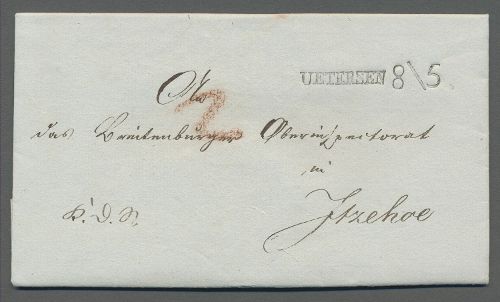 UETERSEN 8\5
An
2
das Breitenburger Oberinspectorat
in
Itzehoe
K. D. S.